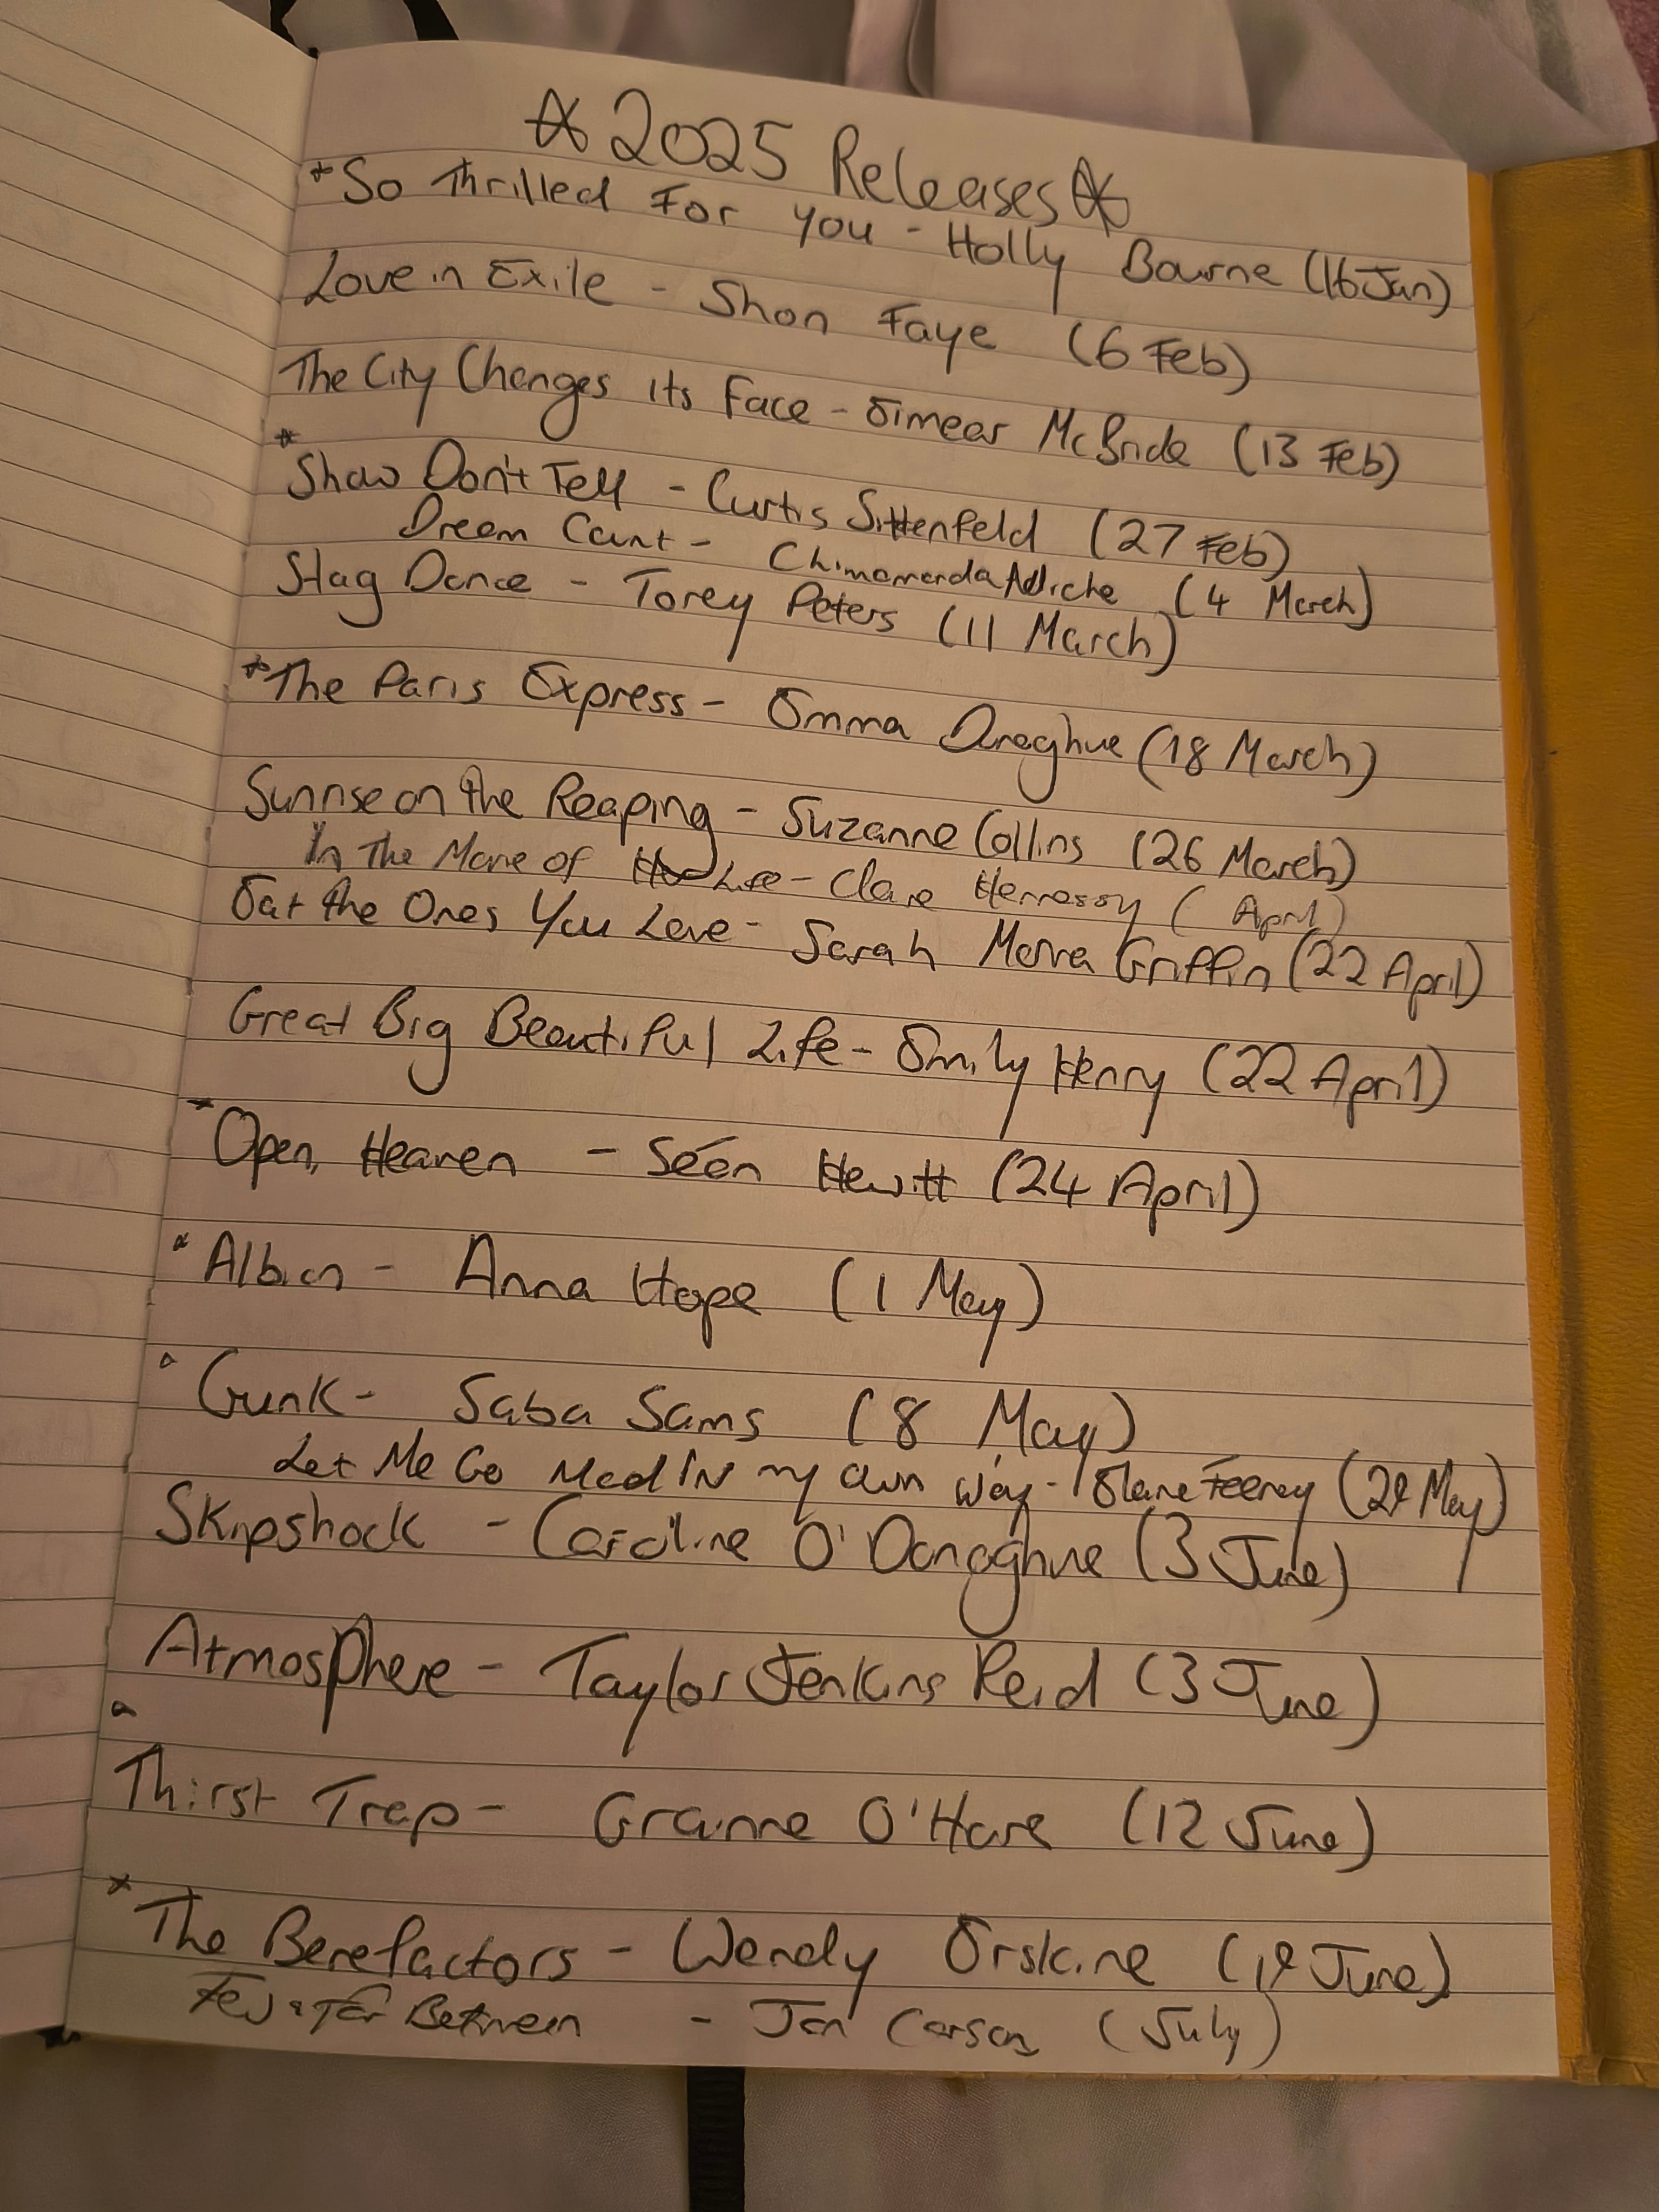 ☆ 2025 Releases ☆
*So Thrilled For You - Holly Bourne (16 Jan)
Love in Exile - Shon Faye (6 Feb)
The City Changes its Face - Eimear McBride (13 Feb)
*Show Don't Tell - Curtis Sittenfeld (27 Feb)
Dream Count - Chimamanda Adiche (4 March)
Stag Dance - Torey Peters (11 March)
*The Paris Express - Emma Donoghue (18 March)
Sunrise on the Reaping - Suzanne Collins (26 March)
In The Mane of Life - Clare Hennessy ( April)
Eat the Ones You Love - Sarah Maria Griffin (22 April)
Great Big Beautiful Life - Emily Henry (22 April)
*Open, Heaven - Séan Hewitt (24 April)
*Albion - Anna Hope (1 May)
*Gunk - Saba Sams (8 May)
Let Me Go Mad IN my own way - Elaine Feeney (29 May)
Skipshock - Caroline O'Donoghue (3 June)
Atmosphere - Taylor Jenkins Reid (3 June)
*Thirst Trap - Grainne O'Hare (12 June)
*The Benefactors - Wendy Erskine (19 June)
Few & Far Between - Jan Carson (July)